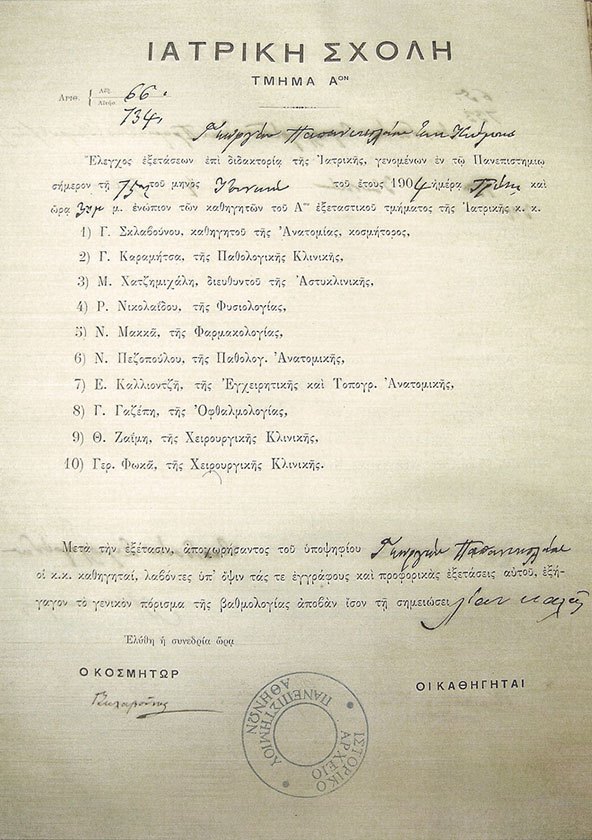 ΙΑΤΡΙΚΗ ΣΧΟΛΗ
ΤΜΗΜΑ Αον
Αριθ. { Αὔξ. 66.
Αἰτήσ. 734
Γεωργίου Παπανικολάου ἐκ Κύμης
Ἔλεγχος ἐξετάσεων ἐπὶ διδακτορίᾳ τῆς Ἰατρικῆς, γενομένων ἐν τῷ Πανεπιστημίῳ
σήμερον τῇ 15ῃ τοῦ μηνὸς Ἰουνίου τοῦ ἔτους 1904 ἡμέρᾳ Τρίτῃ καὶ
ὥρᾳ μ. ἐνώπιον τῶν καθηγητῶν τοῦ Αου ἐξεταστικοῦ τμήματος τῆς Ἰατρικῆς κ. κ.
1) Γ. Σκλαβούνου, καθηγητοῦ τῆς Ἀνατομίας, κοσμήτορος,
2) Γ. Καραμήτσα, τῆς Παθολογικῆς Κλινικῆς,
3) Μ. Χατζημιχάλη, διευθυντοῦ τῆς Ἀστυκλινικῆς,
4) Ρ. Νικολαΐδου, τῆς Φυσιολογίας,
5) Ν. Μακκᾶ, τῆς Φαρμακολογίας,
6) Ν. Πεζοπούλου, τῆς Παθολογ. Ἀνατομικῆς,
7) Ε. Καλλιοντζῆ, τῆς Ἐγχειρητικῆς καὶ Τοπογρ. Ἀνατομικῆς,
8) Γ. Γαζέπη, τῆς Ὀφθαλμολογίας,
9) Θ. Ζαΐμη, τῆς Χειρουργικῆς Κλινικῆς,
10) Γερ. Φωκᾶ, τῆς Χειρουργικῆς Κλινικῆς.
Μετὰ τὴν ἐξέτασιν, ἀποχωρήσαντος τοῦ ὑποψηφίου Γεωργίου Παπανικολάου
οἱ κ.κ. καθηγηταί, λαβόντες ὑπ' ὄψιν τάς τε ἐγγράφους καὶ προφορικὰς ἐξετάσεις αὐτοῦ, ἐξή-
γαγον τὸ γενικὸν πόρισμα τῆς βαθμολογίας ἀποβὰν ἴσον τῇ σημειώσει λίαν καλῶς
Ἐλύθη ἡ συνεδρία ὥρᾳ
Ο ΚΟΣΜΗΤΩΡ
ΟΙ ΚΑΘΗΓΗΤΑΙ
Γ Σκλαβοῦνος
ΙΣΤΟΡΙΚΟ ΑΡΧΕΙΟ
ΠΑΝΕΠΙΣΤΗΜΙΟΥ ΑΘΗΝΩΝ